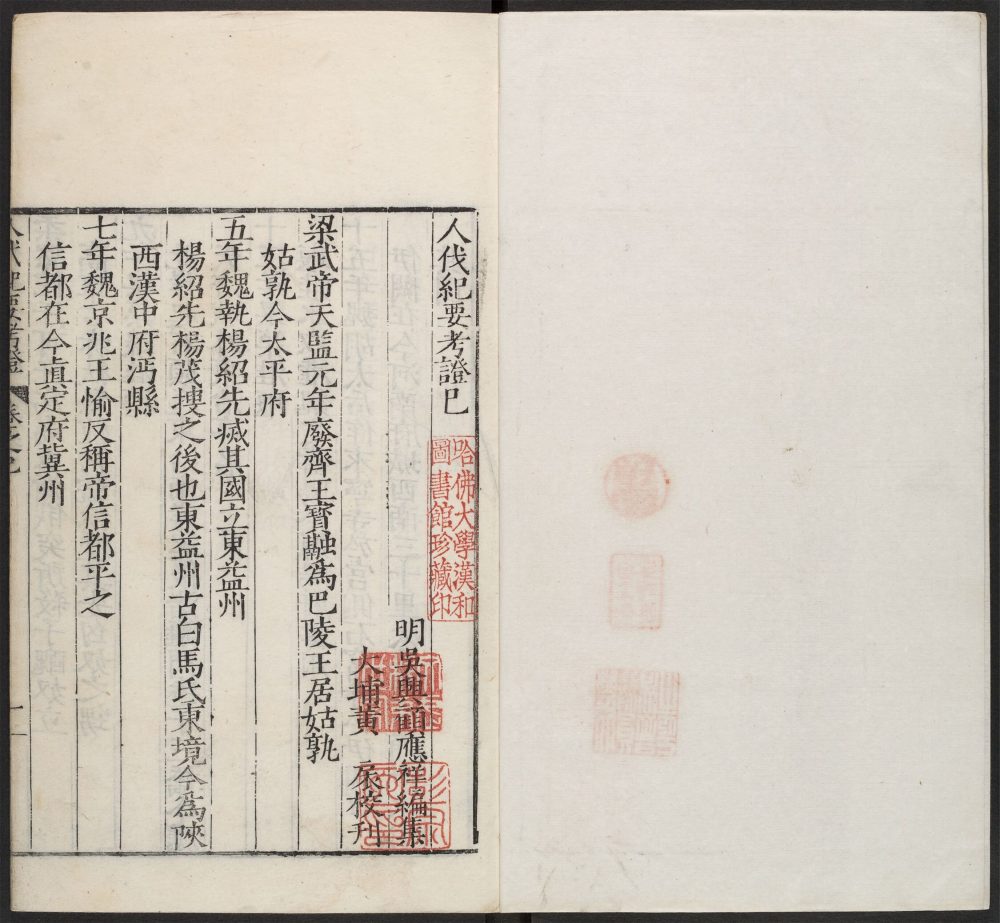 人代紀要考證巳
明吳興顧應祥編集
大埔黃扆校刊
梁武帝天監元年廢齊王寳融爲巴陵王居姑孰
姑孰今太平府
五年魏執楊紹先滅其國立東益州
楊紹先楊茂搜之後也東益州古白馬氐東境今爲陝
西漢中府沔縣
七年魏京兆王愉反稱帝信都平之
信都在今眞定府冀州
人代紀要考證
卷之巳
一
哈佛大學漢和
圖書館珍藏印